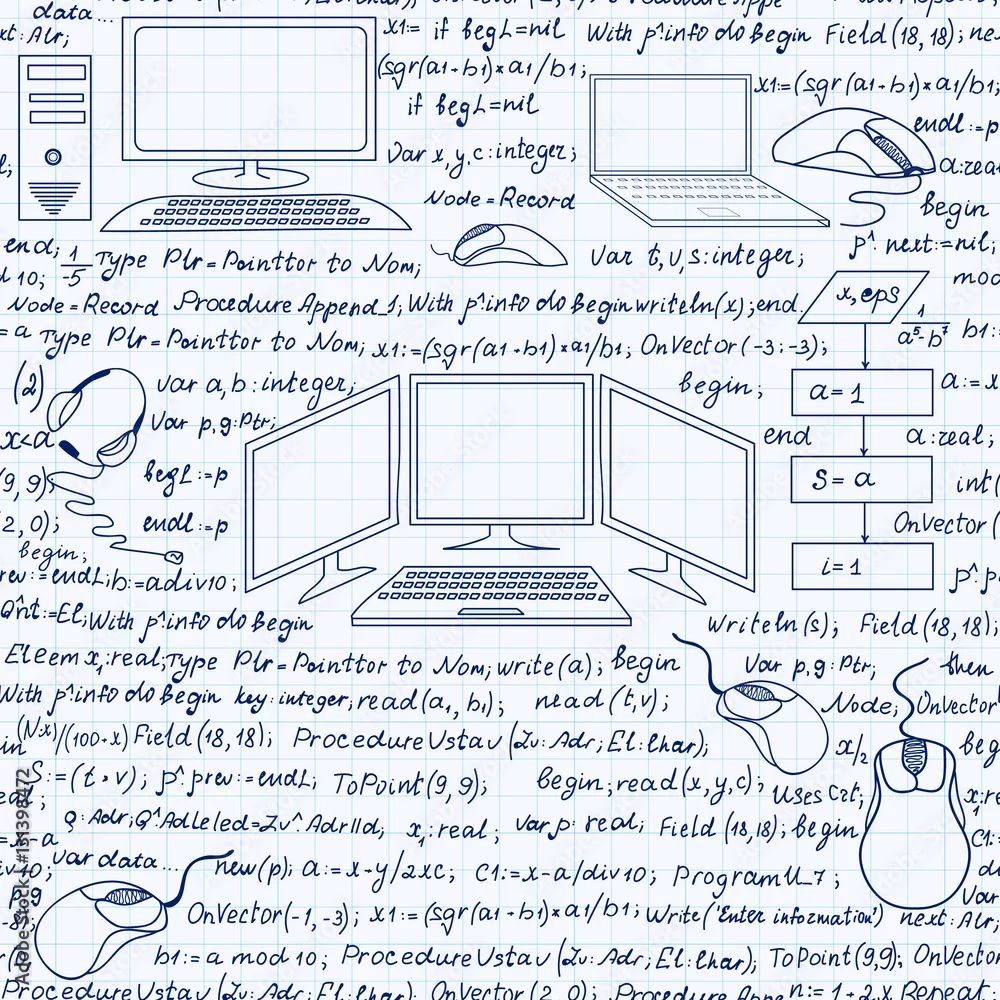 data...
xt: Alr;
x1:= if begL=nil
With p^.info do Begin Field (18, 18); ne
(sgr(a1-b1)*a1/b1;
x1:=(sgr(a1-b1)*a1/b1;
if begL=nil
endl:=p
Var x,y,c:integer;
a:real
Node=Record
Begin
p^. next:=nil;
end;
Var t,v,s:integer;
1/-5
Type Plr=Pointtor to Nom;
x,eps
Node=Record Procedure Append_1; With p^.info do Begin writeln(x); end.
1/a⁵-b⁷
b1:
=a Type Plr=Pointtor to Nom; x1:=(sgr(a1-b1)*a1/b1; OnVector(-3;-3);
(2)
var a,b:integer;
begin;
a=1
a:=x
Var p,g:Ptr;
x<a
end
a:real;
begL:=p
(9,9);
S=a
int(
endl:=p
2,0);
OnVector(
begin;
rev:=endL; b:=adiv10;
i=1
p^.p
Qnt:=El; With p^.info do Begin
writeln(s); Field(18,18);
Eleem x,:real; Type Plr=Pointtor to Nom; write(a); Begin
Var p,g:Ptr;
then
With p^.info do Begin key:integer; read(a1, b1); nead (t,v);
Node; OnVector
(N·x)/(100·x) Field(18,18); ProcedureUstav(Zv:Adr; El:Char);
x/2
beg
S:=(t·v); p^.prev:=endL; ToPoint(9,9); begin; read(x,y,c);
Uses Crt;
x:re
Q:Adr; Q^.Adleled=Zv^.Adrlld; x1:real; Var p: real; Field(18,18); begin
C1:=
var data...
new(p); a:=x-y/2xc; C1:=x-a/div10; ProgramU_7;
OnVector(-1,-3); x1:=(sgr(a1-b1)*a1/b1; Write('Enter information') next:Alr;
b1:=a mod 10; ProcedureUstav(Zv:Adr; El:Char); ToPoint(9,9); OnVector
ProcedureUstav(Zv:Adr; El:Char). OnVector(2,0); Procedure Appe n:=1+2.x Repeat:
Adobe Stock | #131398472